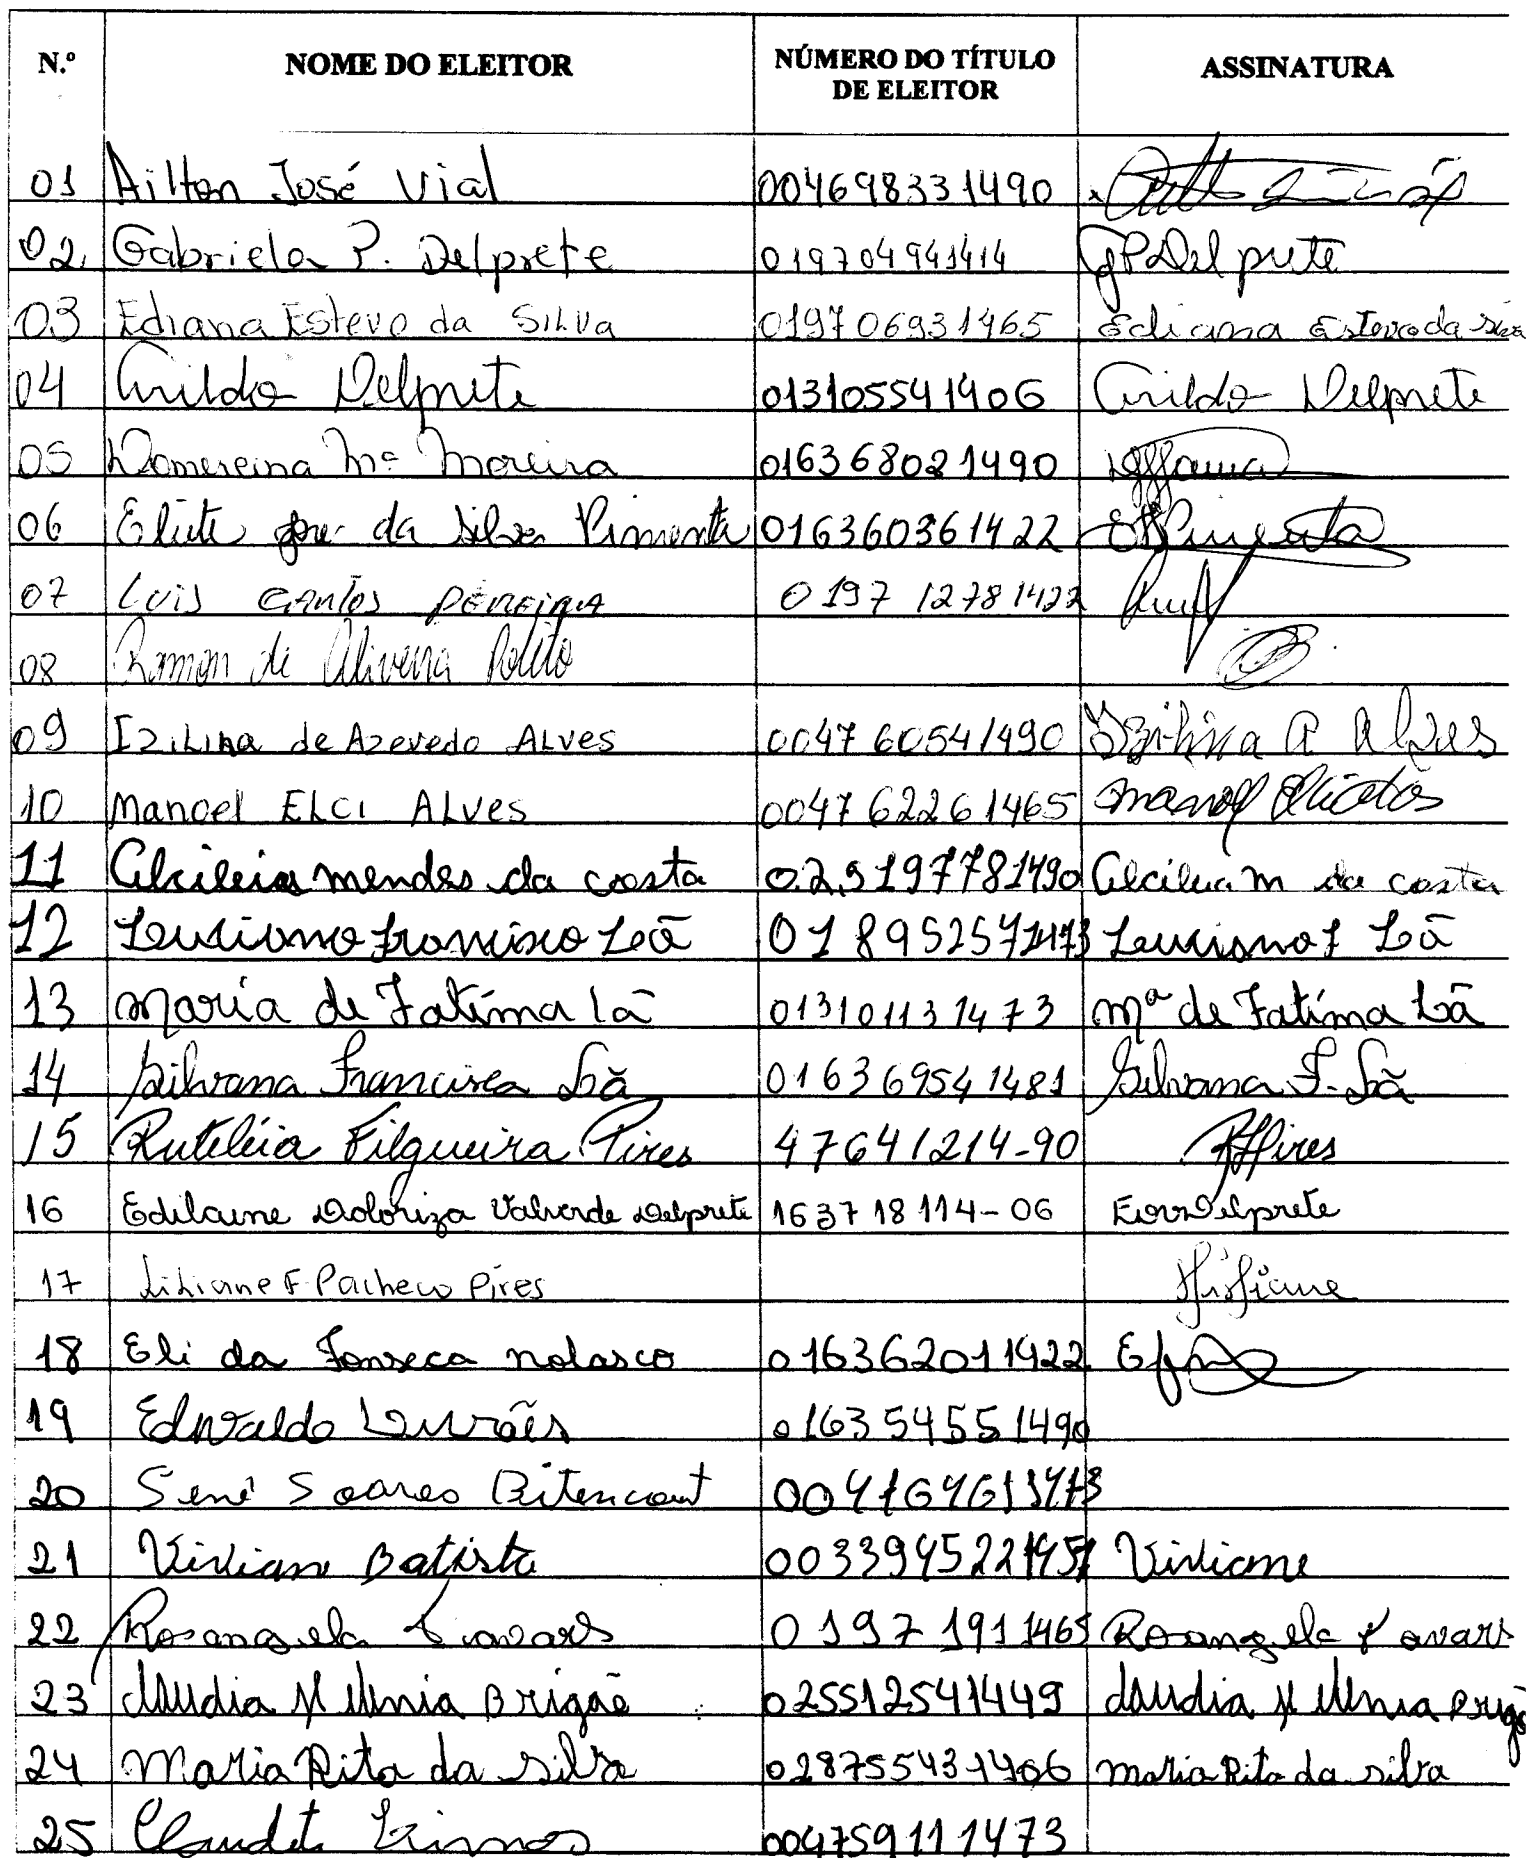 N.º NOME DO ELEITOR NÚMERO DO TÍTULO DE ELEITOR ASSINATURA
01 Ailton José Vial 004698331490
02. Gabriela P. Delprete 019704941414 GPDelprete
03 Ediana Estevo da SILVA 019706931465 Ediana Estevo da Silva
04 Cirildo Delprete 013105541406 Cirildo Delprete
05 Domereina Mª Moreira 016368021490
06 Eliete da Silva Pimenta 016360361422 Pimenta
07 Luis CARLOS PEREIRA 0197 12781422
08 Ramon de Oliveira Polito
09 IZILINA de Azevedo ALVES 004760541490 Izilina A Alves
10 Manoel ELCI ALVES 004762261465 Manoel
11 Alcileia mendes da costa 02.9197781490 Alcileia m da costa
12 Luciano Francisco Lã 018952571473 Luciano F Lã
13 Maria de Fatima lã 013101131473 Mª de Fatima Lã
14 Silvana Francisca Lã 016369541481 Silvana F. Lã
15 Rutiléia Filgueira Pires 47641214-90 RFPires
16 Edilaine Doloriza Valverde Delprete 163718114-06 EDVDelprete
17 Liliane F Pacheco Pires Liliane
18 Eli da Fonseca nolasco 016362011422
19 Edvaldo 016354551490
20 Soares Bitencourt
21 Batista 003394522145 Viviane
22 Rosangela Tavares 0197 1911465 Rosangela Tavars
23 Brigão 025512541449
24 Maria Rita da silva 028755431406 maria Rita da silva
25 004759111473